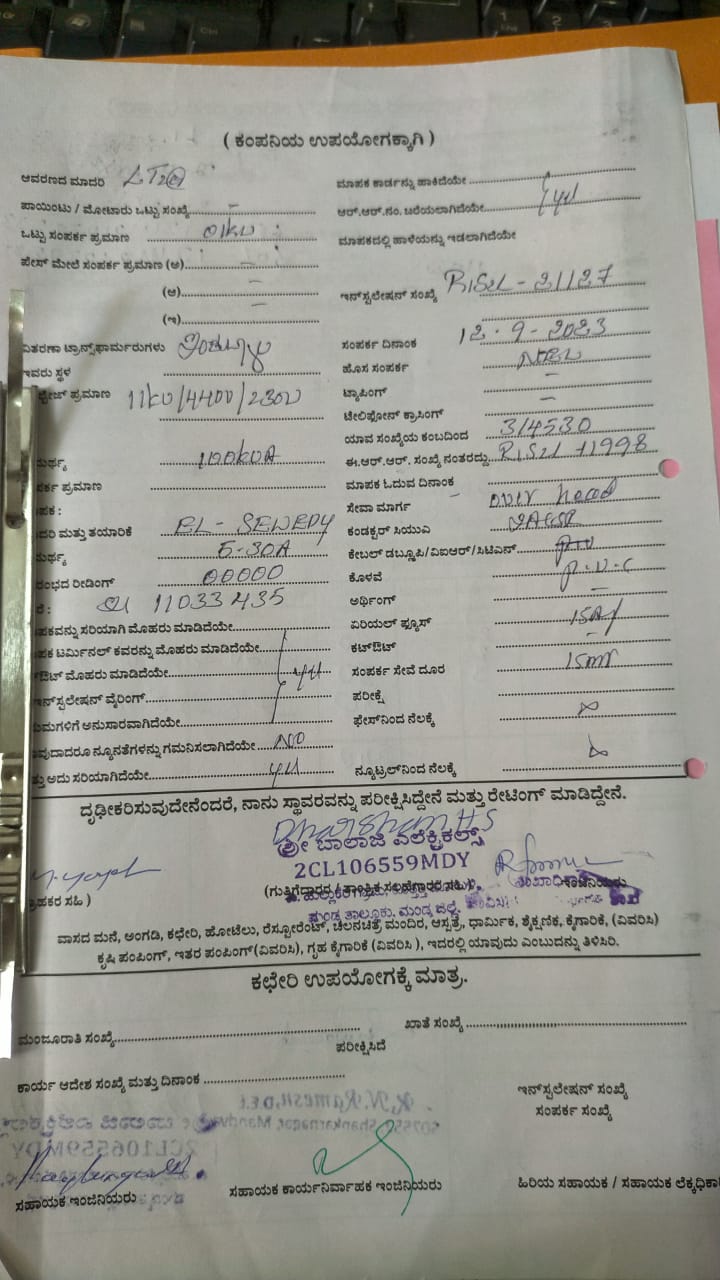 ( ಕಂಪನಿಯ ಉಪಯೋಗಕ್ಕಾಗಿ )
ಆವರಣದ ಮಾದರಿ LT2 ಮಾಪಕ ಕಾರ್ಡನ್ನು ಹಾಕಿದೆಯೇ
ಪಾಯಿಂಟು / ಮೋಟಾರು ಒಟ್ಟು ಸಂಖ್ಯೆ – ಆರ್.ಆರ್.ನಂ. ಬರೆಯಲಾಗಿದೆಯೇ
ಒಟ್ಟು ಸಂಪರ್ಕ ಪ್ರಮಾಣ 01KW ಮಾಪಕದಲ್ಲಿ ಹಾಳೆಯನ್ನು ಇಡಲಾಗಿದೆಯೇ
ಫೇಸ್ ಮೇಲೆ ಸಂಪರ್ಕ ಪ್ರಮಾಣ (ಅ) –
(ಆ) – ಇನ್‌ಸ್ಟಲೇಷನ್ ಸಂಖ್ಯೆ RISL-21127
(ಇ) –
ವಿತರಣಾ ಟ್ರಾನ್ಸ್‌ಫಾರ್ಮರುಗಳು ಸಂಪರ್ಕ ದಿನಾಂಕ 12-9-2023
ಇವರು ಸ್ಥಳ ಹೊಸ ಸಂಪರ್ಕ
ಪ್ರಮಾಣ 11KV/4400/230V ಟ್ಯಾಪಿಂಗ್ –
ಟೆಲಿಫೋನ್ ಕ್ರಾಸಿಂಗ್ –
ಯಾವ ಸಂಖ್ಯೆಯ ಕಂಬದಿಂದ 314530
100KVA ಈ.ಆರ್.ಆರ್. ಸಂಖ್ಯೆ ನಂತರದ್ದು RISL 11998
ಪರ್ಕ ಪ್ರಮಾಣ ಮಾಪಕ ಓದುವ ದಿನಾಂಕ –
ಪಕ : ಸೇವಾ ಮಾರ್ಗ over head
ದರಿ ಮತ್ತು ತಯಾರಿಕೆ EL-SEWEDY ಕಂಡಕ್ಟರ್ ಸಿಯುವಿ
5-30A ಕೇಬಲ್ ಡಬ್ಲ್ಯೂಪಿ/ವಿಐಆರ್/ಸಿಟಿಎನ್
ರಂಭದ ರೀಡಿಂಗ್ 00000 ಕೊಳವೆ P.V.C
11033435 ಅರ್ಥಿಂಗ್ –
ಪಕವನ್ನು ಸರಿಯಾಗಿ ಮೊಹರು ಮಾಡಿದೆಯೇ ಏರಿಯಲ್ ಫ್ಯೂಸ್ 15A
ಪಕ ಟರ್ಮಿನಲ್ ಕವರನ್ನು ಮೊಹರು ಮಾಡಿದೆಯೇ ಕಟ್‌ಔಟ್ –
ಔಟ್ ಮೊಹರು ಮಾಡಿದೆಯೇ ಸಂಪರ್ಕ ಸೇವೆ ದೂರ 15mr
ಇನ್‌ಸ್ಟಲೇಷನ್ ವೈರಿಂಗ್ ಪರೀಕ್ಷೆ
ಯಮಗಳಿಗೆ ಅನುಸಾರವಾಗಿದೆಯೇ ಫೇಸ್‌ನಿಂದ ನೆಲಕ್ಕೆ
ವುದಾದರೂ ನ್ಯೂನತೆಗಳನ್ನು ಗಮನಿಸಲಾಗಿದೆಯೇ NO
ತ್ತು ಅದು ಸರಿಯಾಗಿದೆಯೇ ನ್ಯೂಟ್ರಲ್‌ನಿಂದ ನೆಲಕ್ಕೆ
ದೃಢೀಕರಿಸುವುದೇನೆಂದರೆ, ನಾನು ಸ್ಥಾವರವನ್ನು ಪರೀಕ್ಷಿಸಿದ್ದೇನೆ ಮತ್ತು ರೇಟಿಂಗ್ ಮಾಡಿದ್ದೇನೆ.
Dharshan H S
ಶ್ರೀ ಬಾಲಾಜಿ ಎಲೆಕ್ಟ್ರಿಕಲ್ಸ್
2CL106559MDY
ಗ್ರಾಹಕರ ಸಹಿ ) (ಗುತ್ತಿಗೆದಾರರ / ತಾಂತ್ರಿಕ ಸಲಹೆಗಾರರ ಸಹಿ)
ಮಂಡ್ಯ ತಾಲ್ಲೂಕು, ಮಂಡ್ಯ ಜಿಲ್ಲೆ.
ವಾಸದ ಮನೆ, ಅಂಗಡಿ, ಕಛೇರಿ, ಹೋಟೆಲು, ರೆಸ್ಟೋರೆಂಟ್, ಚಲನಚಿತ್ರ ಮಂದಿರ, ಆಸ್ಪತ್ರೆ, ಧಾರ್ಮಿಕ, ಶೈಕ್ಷಣಿಕ, ಕೈಗಾರಿಕೆ, (ವಿವರಿಸಿ)
ಕೃಷಿ ಪಂಪಿಂಗ್, ಇತರ ಪಂಪಿಂಗ್(ವಿವರಿಸಿ), ಗೃಹ ಕೈಗಾರಿಕೆ (ವಿವರಿಸಿ ), ಇದರಲ್ಲಿ ಯಾವುದು ಎಂಬುದನ್ನು ತಿಳಿಸಿರಿ.
ಕಛೇರಿ ಉಪಯೋಗಕ್ಕೆ ಮಾತ್ರ.
ಮಂಜೂರಾತಿ ಸಂಖ್ಯೆ ಖಾತೆ ಸಂಖ್ಯೆ
ಪರೀಕ್ಷಿಸಿದೆ
ಕಾರ್ಯ ಆದೇಶ ಸಂಖ್ಯೆ ಮತ್ತು ದಿನಾಂಕ ಇನ್‌ಸ್ಟಲೇಷನ್ ಸಂಖ್ಯೆ
ಸಂಪರ್ಕ ಸಂಖ್ಯೆ
ಸಹಾಯಕ ಇಂಜಿನಿಯರು ಸಹಾಯಕ ಕಾರ್ಯನಿರ್ವಾಹಕ ಇಂಜಿನಿಯರು ಹಿರಿಯ ಸಹಾಯಕ / ಸಹಾಯಕ ಲೆಕ್ಕಧಿಕಾರಿ